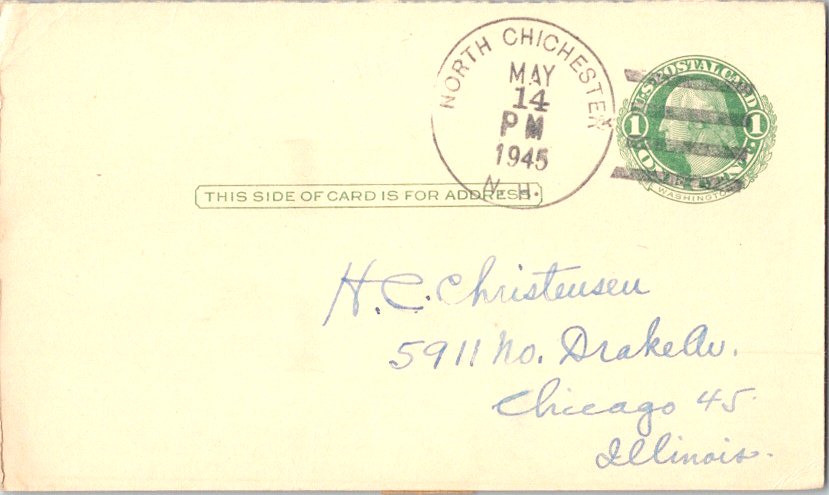 NORTH CHICHESTER
MAY
14
PM
1945
N. H.
U.S. POSTAL CARD
1 1
ONE CENT
WASHINGTON
THIS SIDE OF CARD IS FOR ADDRESS
H. C. Christensen
5911 No. Drake Av.
Chicago 45
Illinois.